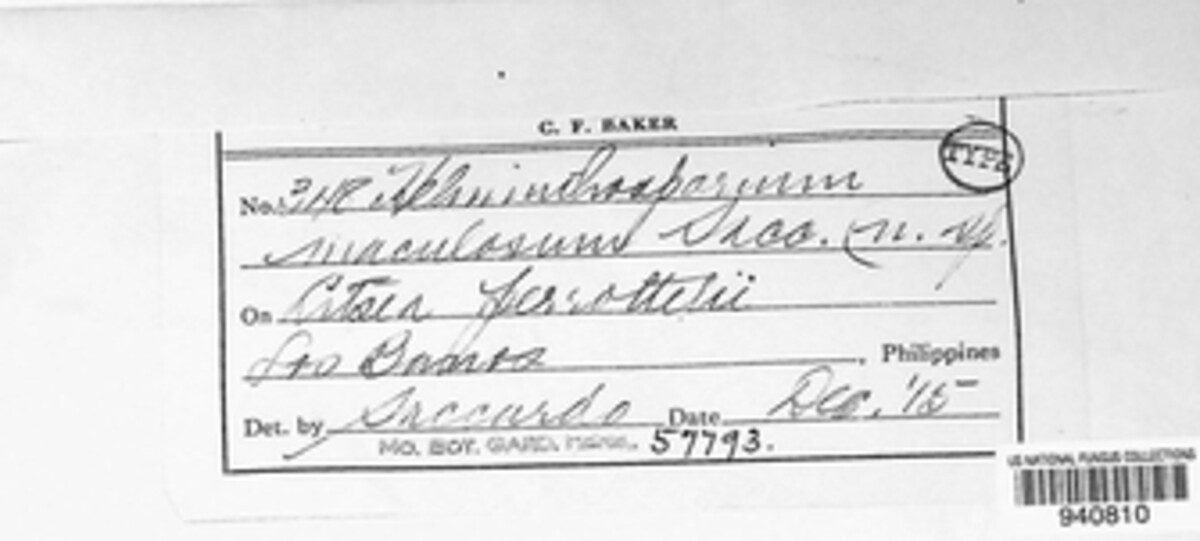 C. F. BAKER
TYPE
No. Helminthosporium
maculosum Sacc. (n. sp.
On Litsea perrottetii
Los Banos, Philippines
Det. by Saccardo Date Dec. '15
MO. BOT. GARD. HERB. 57793.
US NATIONAL FUNGUS COLLECTIONS
940810